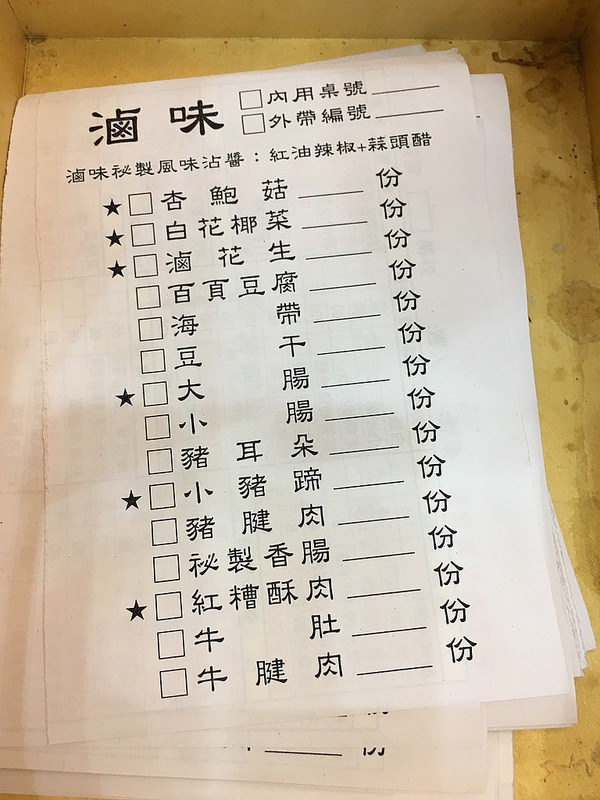 滷味 □內用桌號______
□外帶編號______
滷味祕製風味沾醬:紅油辣椒+蒜頭醋
★□杏鮑菇____份
★□白花椰菜____份
★□滷花生____份
□百頁豆腐____份
□海帶____份
□豆干____份
★□大腸____份
□小腸____份
□豬耳朵____份
★□小豬蹄____份
□豬腱肉____份
□祕製香腸____份
★□紅糟酥肉____份
□牛肚____份
□牛腱肉____份